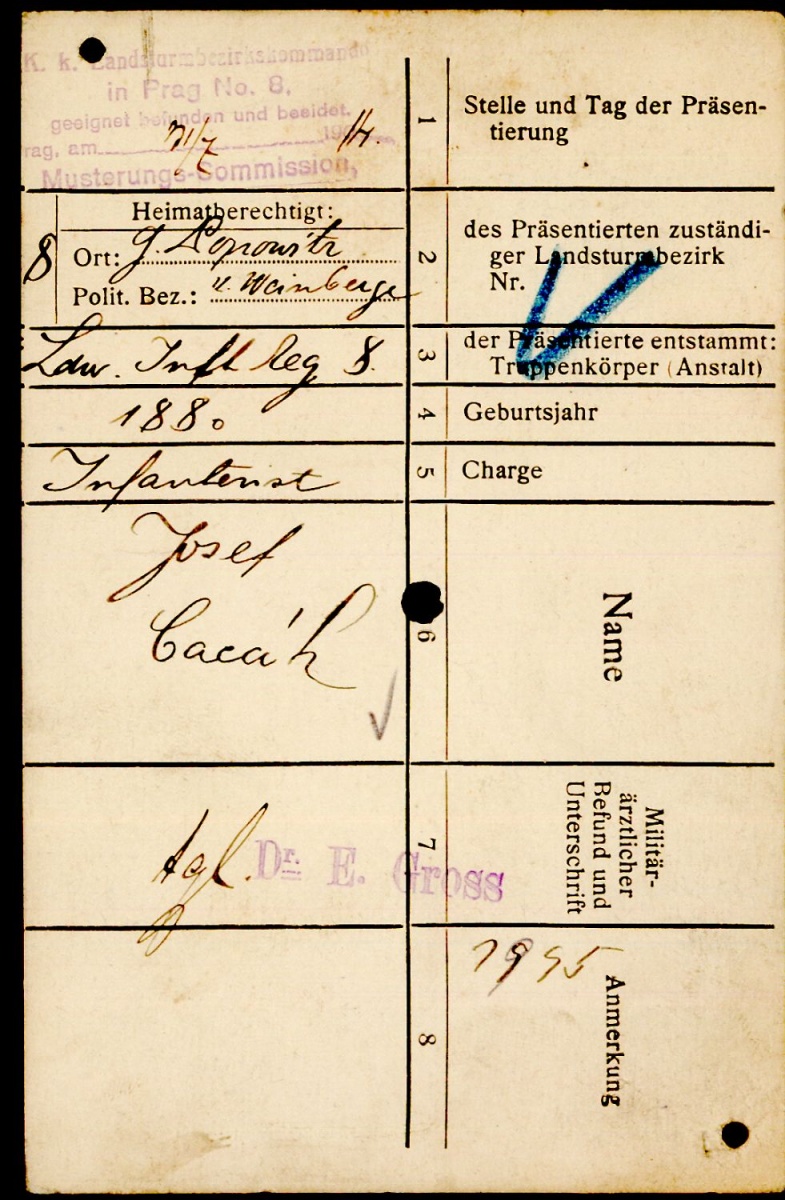 1
Stelle und Tag der Präsen-
tierung
K. k. Landsturmbezirkskommando
in Prag No. 8,
geeignet befunden und beeidet.
Prag, am 31/7 14.
Musterungs-Commission,
2
des Präsentierten zuständi-
ger Landsturmbezirk
Nr.
8
Heimatberechtigt:
Ort: G. Popowitz
Polit. Bez.: K. Weinberge
3
der Präsentierte entstammt:
Truppenkörper (Anstalt)
Ldw. Inft Reg 8.
4
Geburtsjahr
1880
5
Charge
Infanterist
6
Name
Josef
Cacák
7
Militär-
ärztlicher
Befund und
Unterschrift
tgl.
Dr. E. Gross
8
Anmerkung